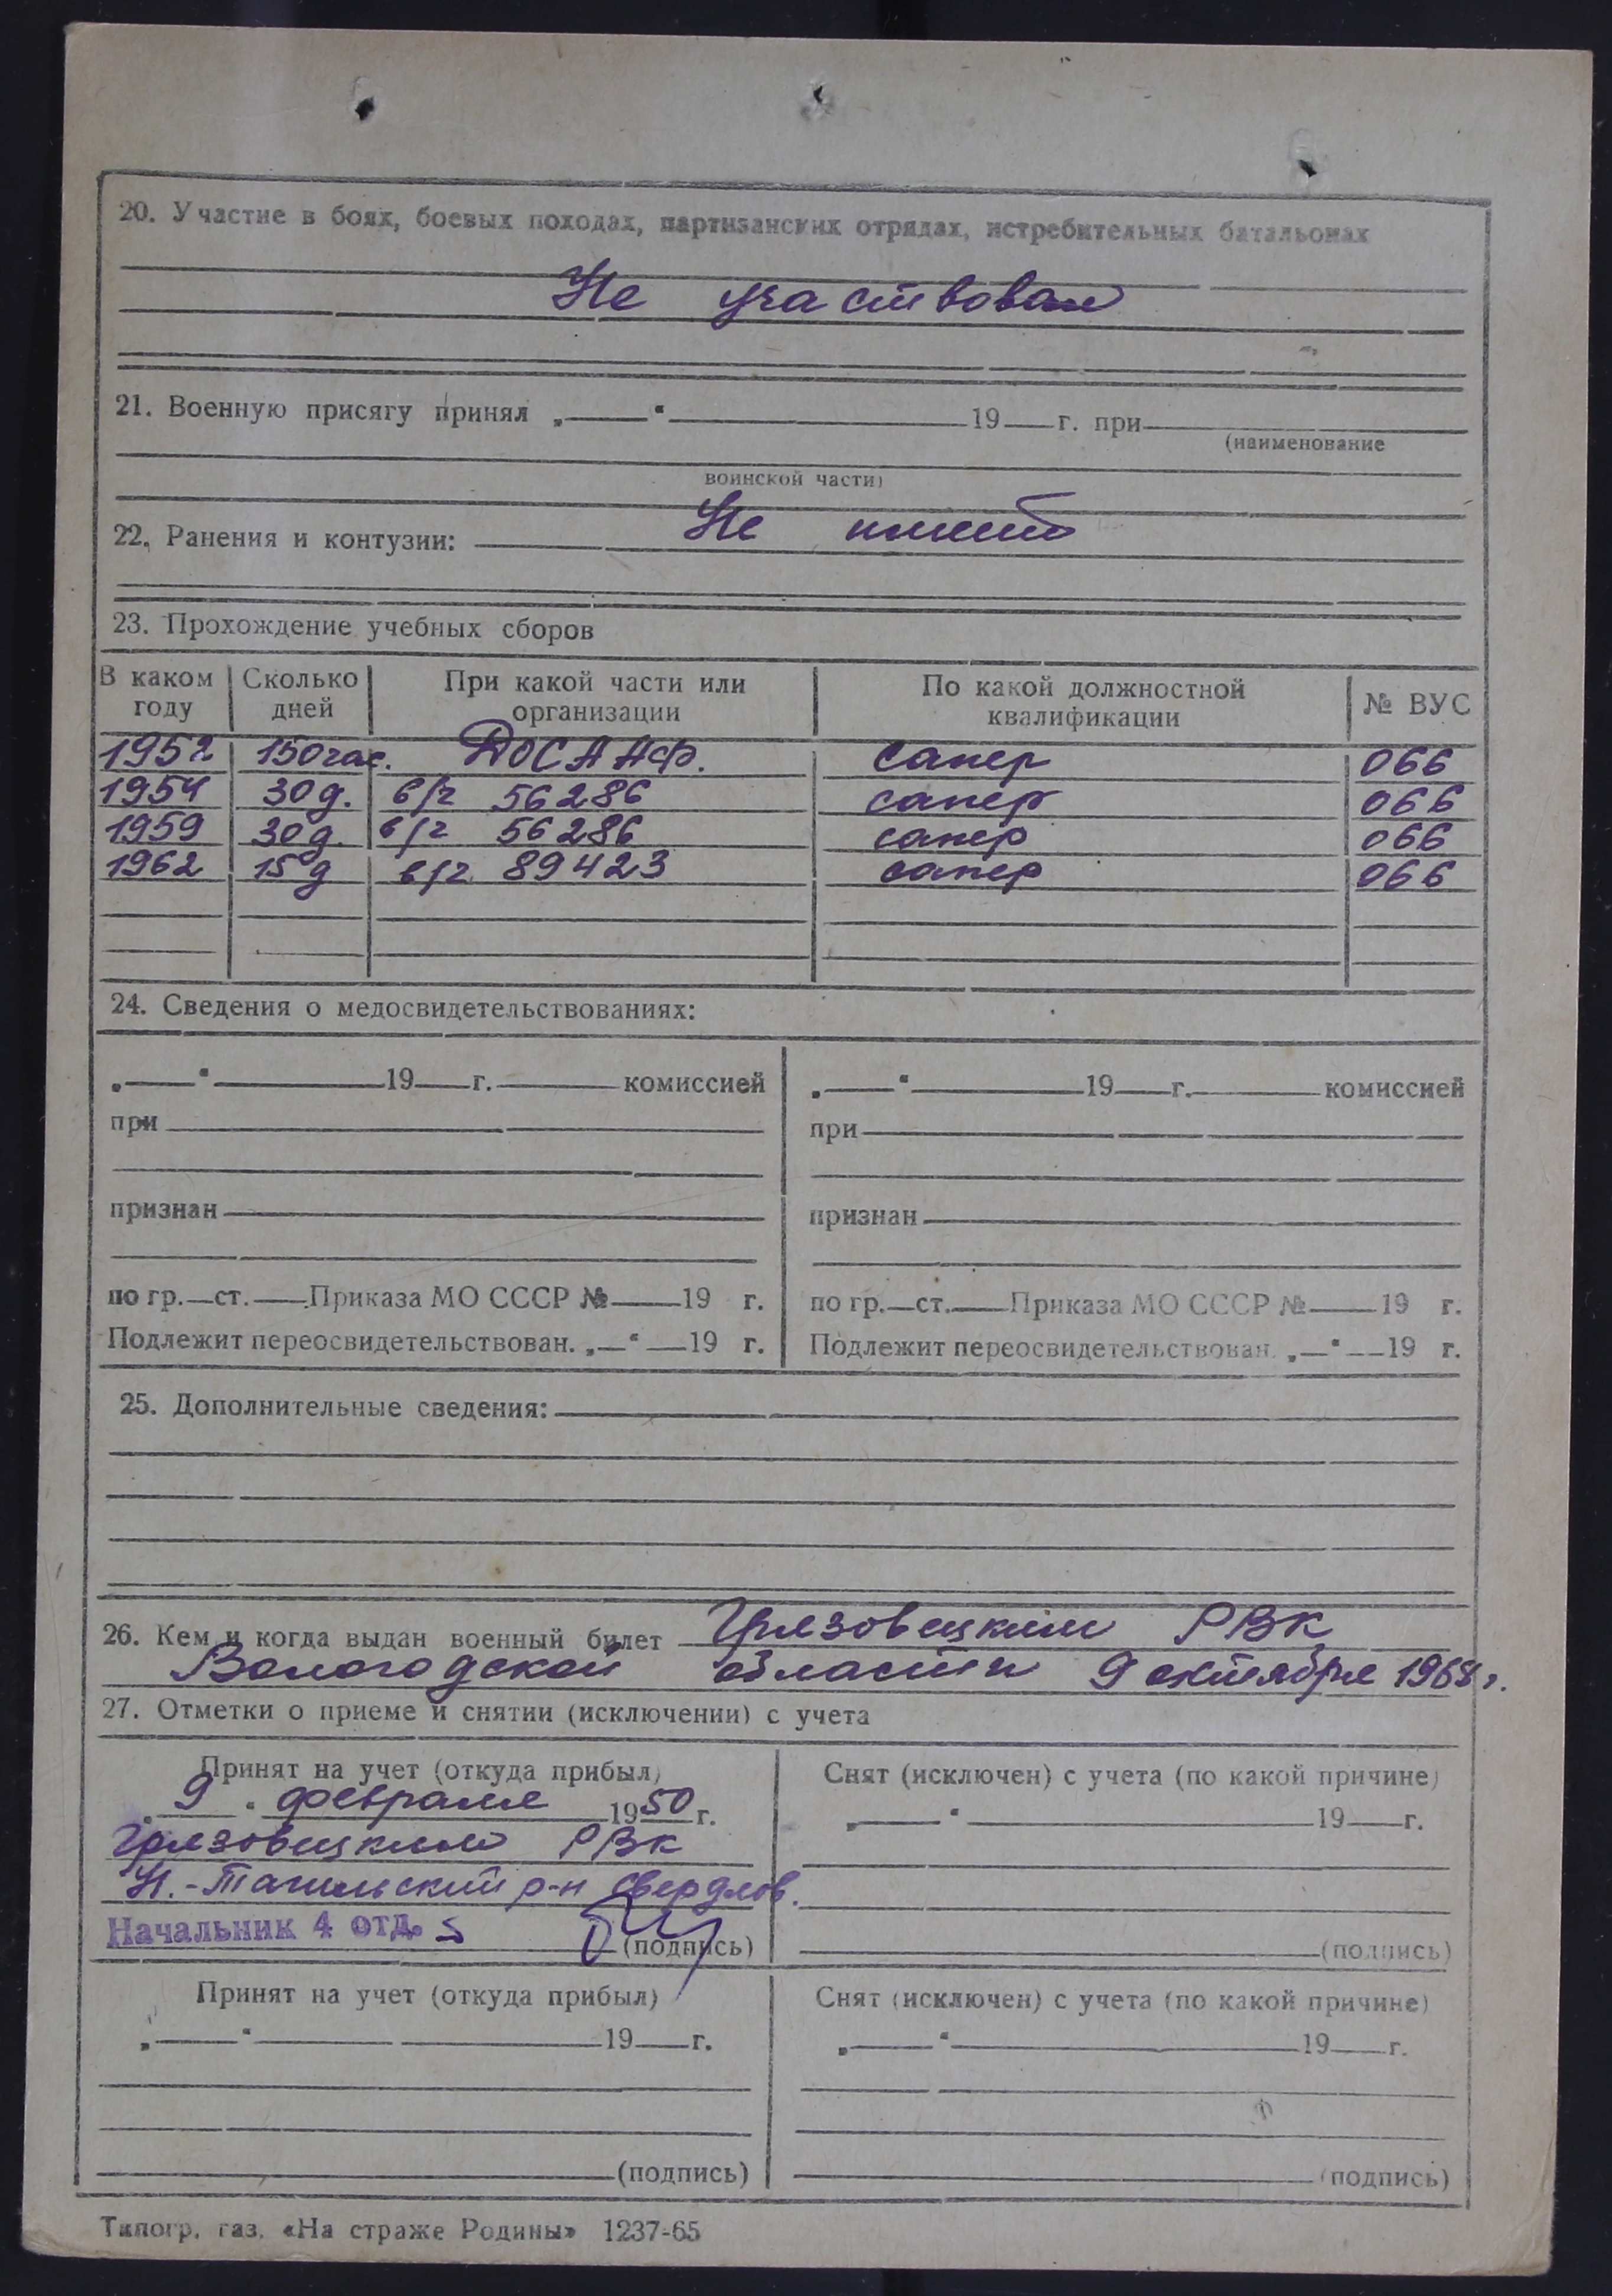 20. Участие в боях, боевых походах, партизанских отрядах, истребительных батальонах
Не участвовал
21. Военную присягу принял „ “ 19 г. при
(наименование
воинской части)
22. Ранения и контузии: Не имеет
23. Прохождение учебных сборов
В каком году | Сколько дней | При какой части или организации | По какой должностной квалификации | № ВУС
1952 | 150 час. | ДОСААФ. | сапер | 066
1954 | 30 д. | в/ч 56286 | сапер | 066
1959 | 30 д. | в/ч 56286 | сапер | 066
1962 | 15 д | в/ч 89423 | сапер | 066
24. Сведения о медосвидетельствованиях:
„ “ 19 г. комиссией
при
признан
по гр. ст. Приказа МО СССР № 19 г.
Подлежит переосвидетельствован. „ “ 19 г.
„ “ 19 г. комиссией
при
признан
по гр. ст. Приказа МО СССР № 19 г.
Подлежит переосвидетельствован. „ “ 19 г.
25. Дополнительные сведения:
26. Кем и когда выдан военный билет Грязовецким РВК
Вологодской области 9 октября 1968 г.
27. Отметки о приеме и снятии (исключении) с учета
Принят на учет (откуда прибыл)
„ 9 “ февраля 1950 г.
Грязовецким РВК
Н.-Тагильский р-н Свердлов.
Начальник 4 отд.
(подпись)
Снят (исключен) с учета (по какой причине)
„ “ 19 г.
(подпись)
Принят на учет (откуда прибыл)
„ “ 19 г.
(подпись)
Снят (исключен) с учета (по какой причине)
„ “ 19 г.
(подпись)
Типогр. газ. «На страже Родины» 1237-65